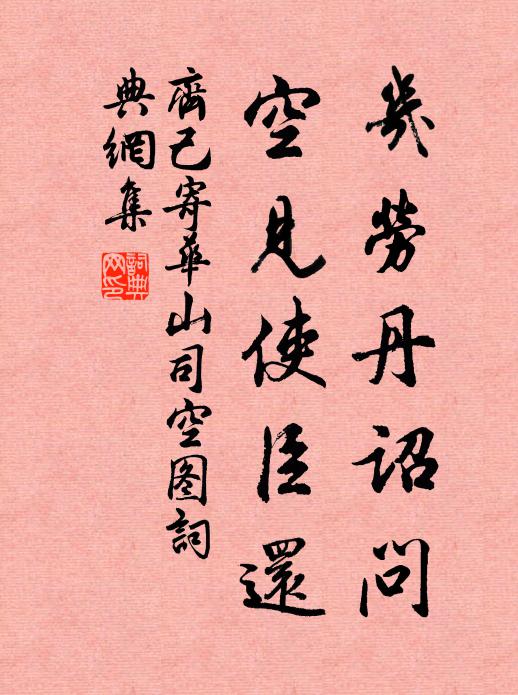 幾勞丹詔問
空見使臣還
齊己寄華山司空图詞
典網集
詞典網印